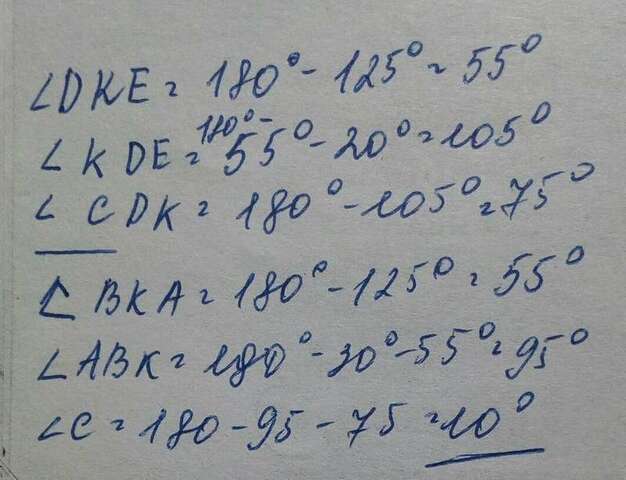 ∠DKE = 180° - 125° = 55°
∠KDE = 180° - 55° - 20° = 105°
∠CDK = 180° - 105° = 75°
∠BKA = 180° - 125° = 55°
∠ABK = 180° - 30° - 55° = 95°
∠C = 180 - 95 - 75 = 10°